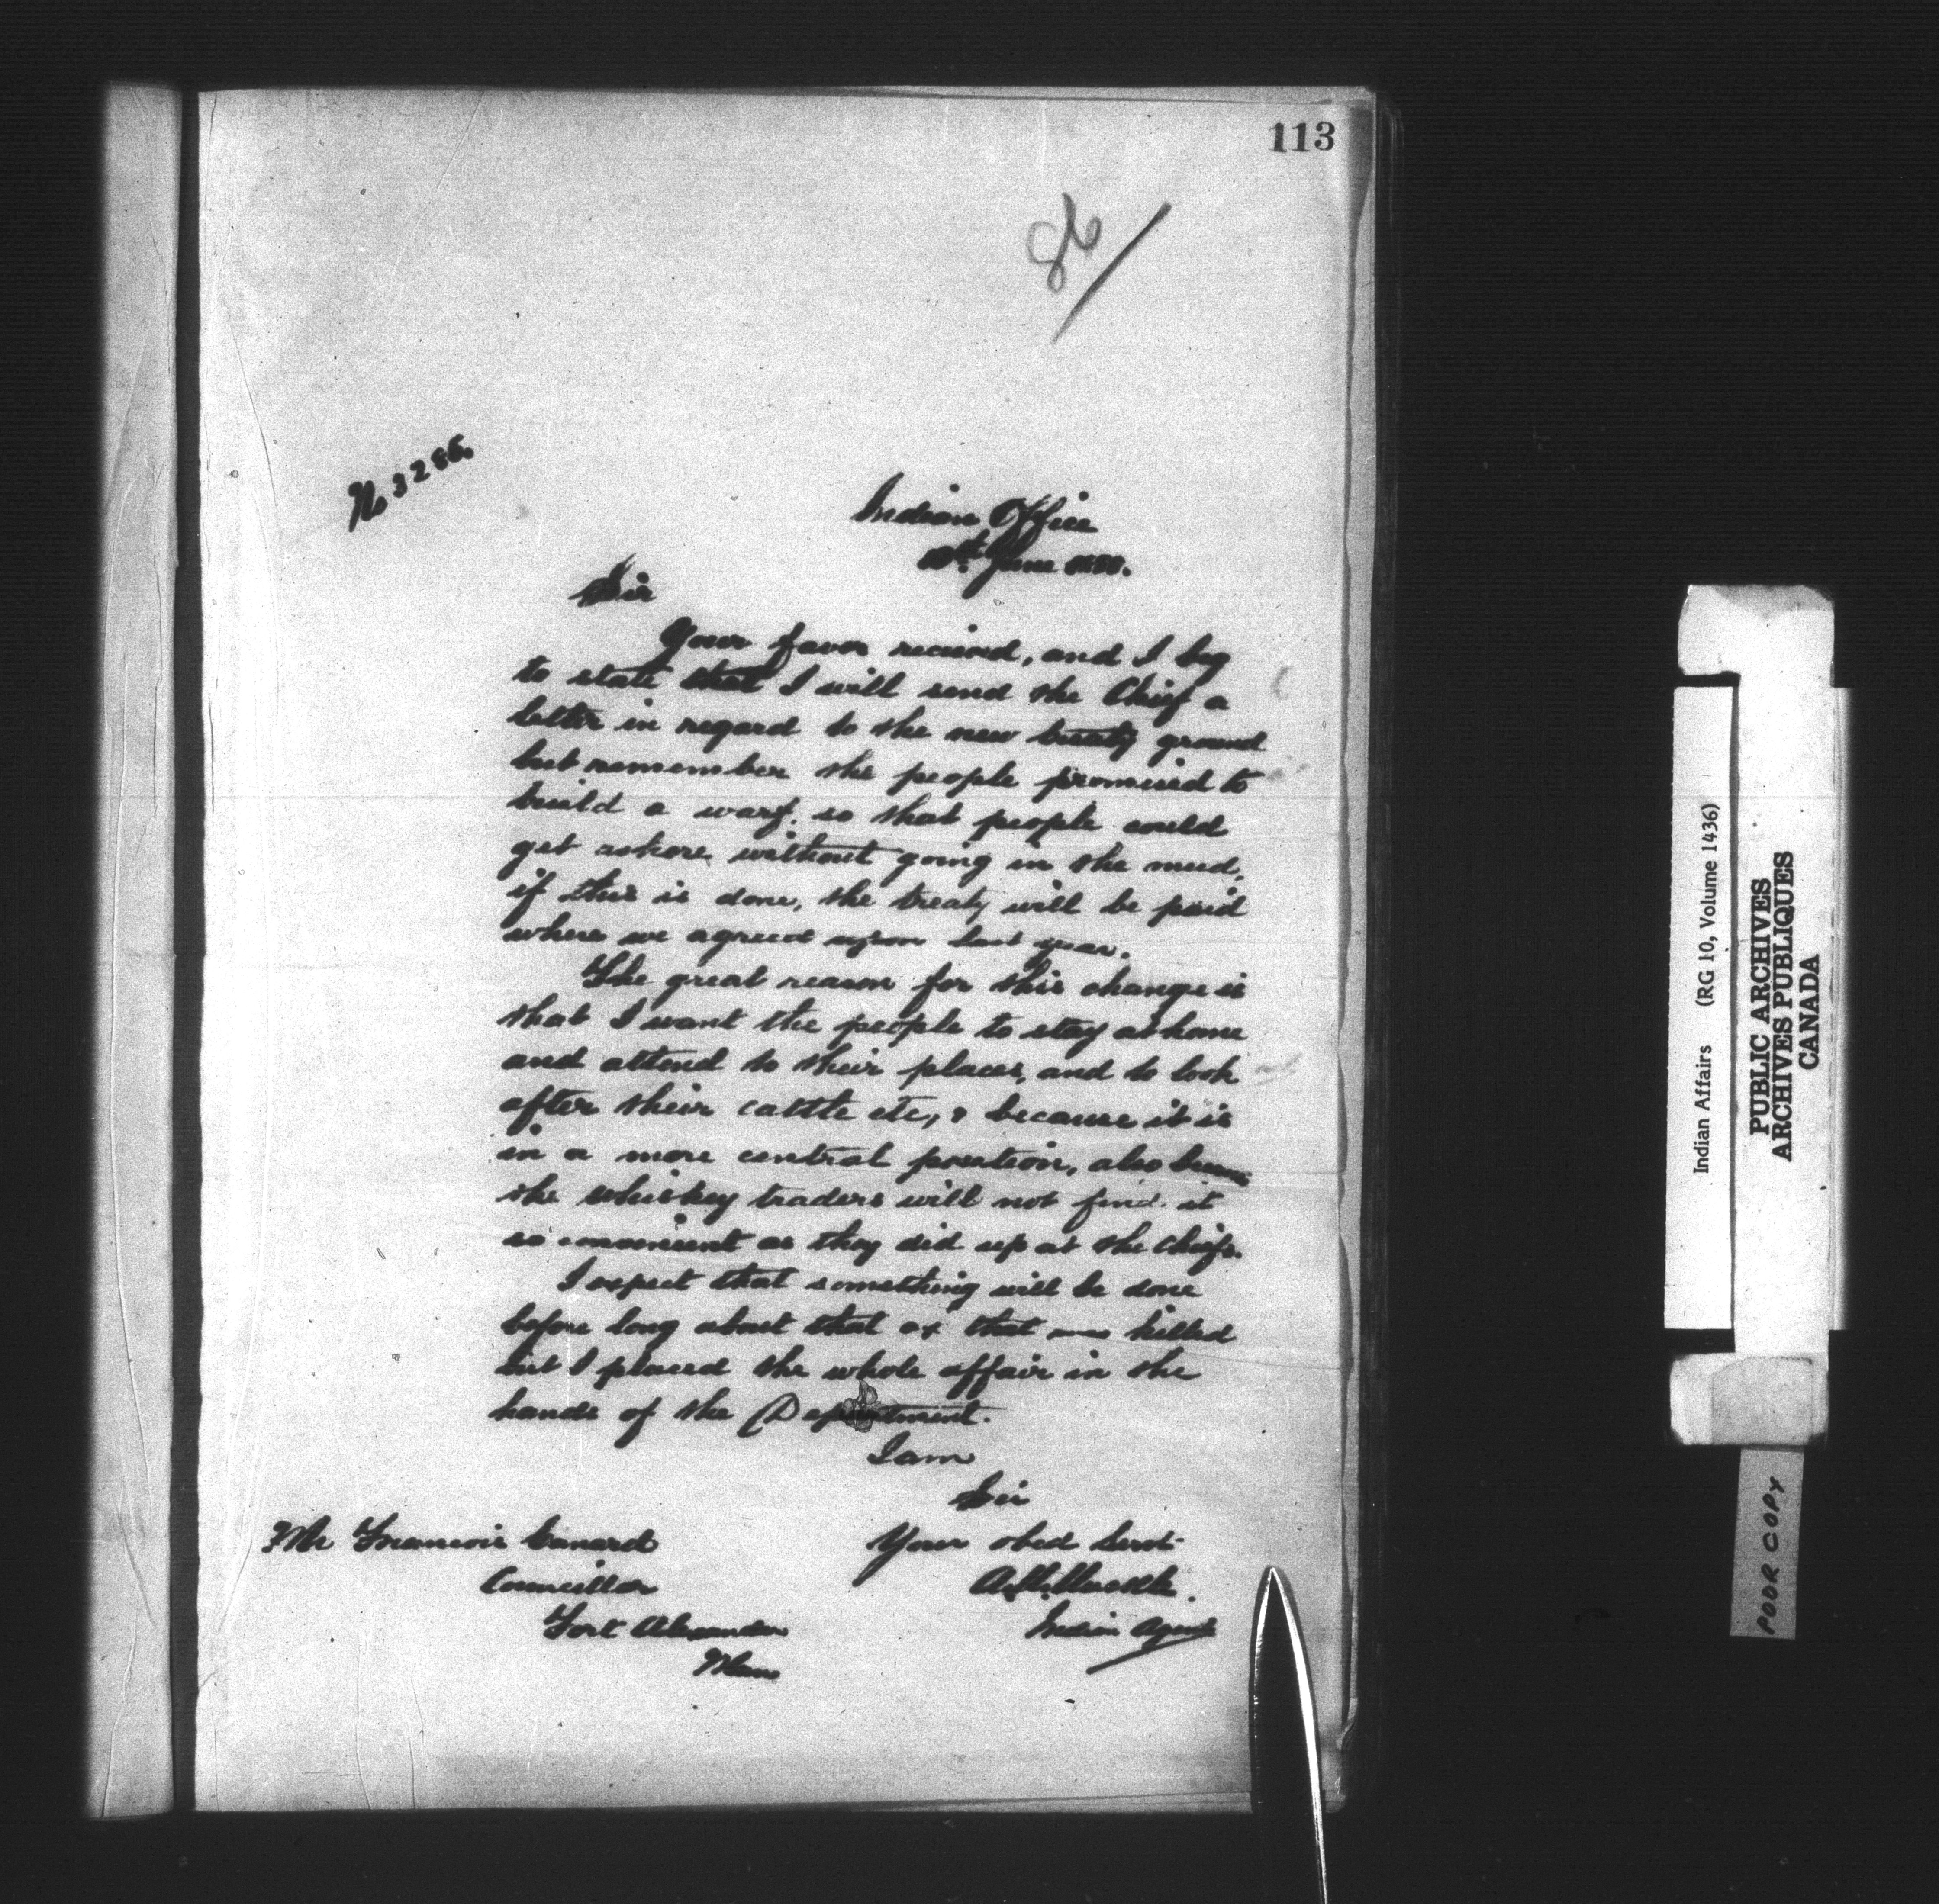 113
86/
No 3286.
Indian Office
June 1888.
Sir
Your favor recieved, and I beg
to state that I will send the Chief a
letter in regard to the new treaty ground
but remember the people promised to
build a warf. so that people could
get ashore without going in the mud,
if this is done, the treaty will be paid
where we agreed upon last year.
The great reason for this change is
that I want the people to stay at home
and attend to their places, and to look
after their cattle etc, & because it is
in a more central position, also because
the whiskey traders will not find it
so convenient as they did up at the Chiefs.
I expect that something will be done
before long about that ox that was killed
but I placed the whole affair in the
hands of the Department.
I am
Sir
Your obed Servt.
A. M. Muckle.
Indian Agent
Mr Francois Canard
Councillor
Fort Alexander
Man
Indian Affairs (RG 10, Volume 1436)
PUBLIC ARCHIVES
ARCHIVES PUBLIQUES
CANADA
POOR COPY